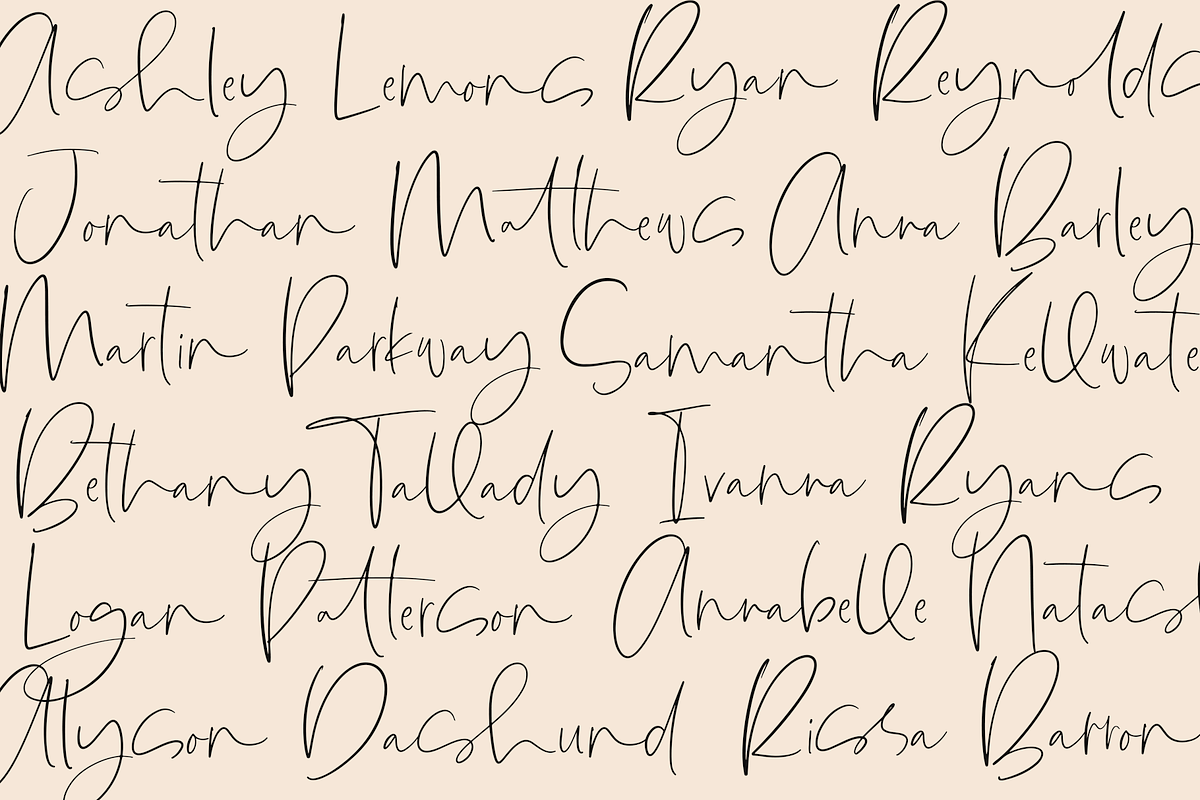 Ashley Lemons Ryan Reynolds
Jonathan Matthews Anna Barley
Martin Parkway Samantha Kellwate
Bethany Tallady Ivanna Ryans
Logan Patterson Annabelle Natash
Allyson Dashund Rissa Barron